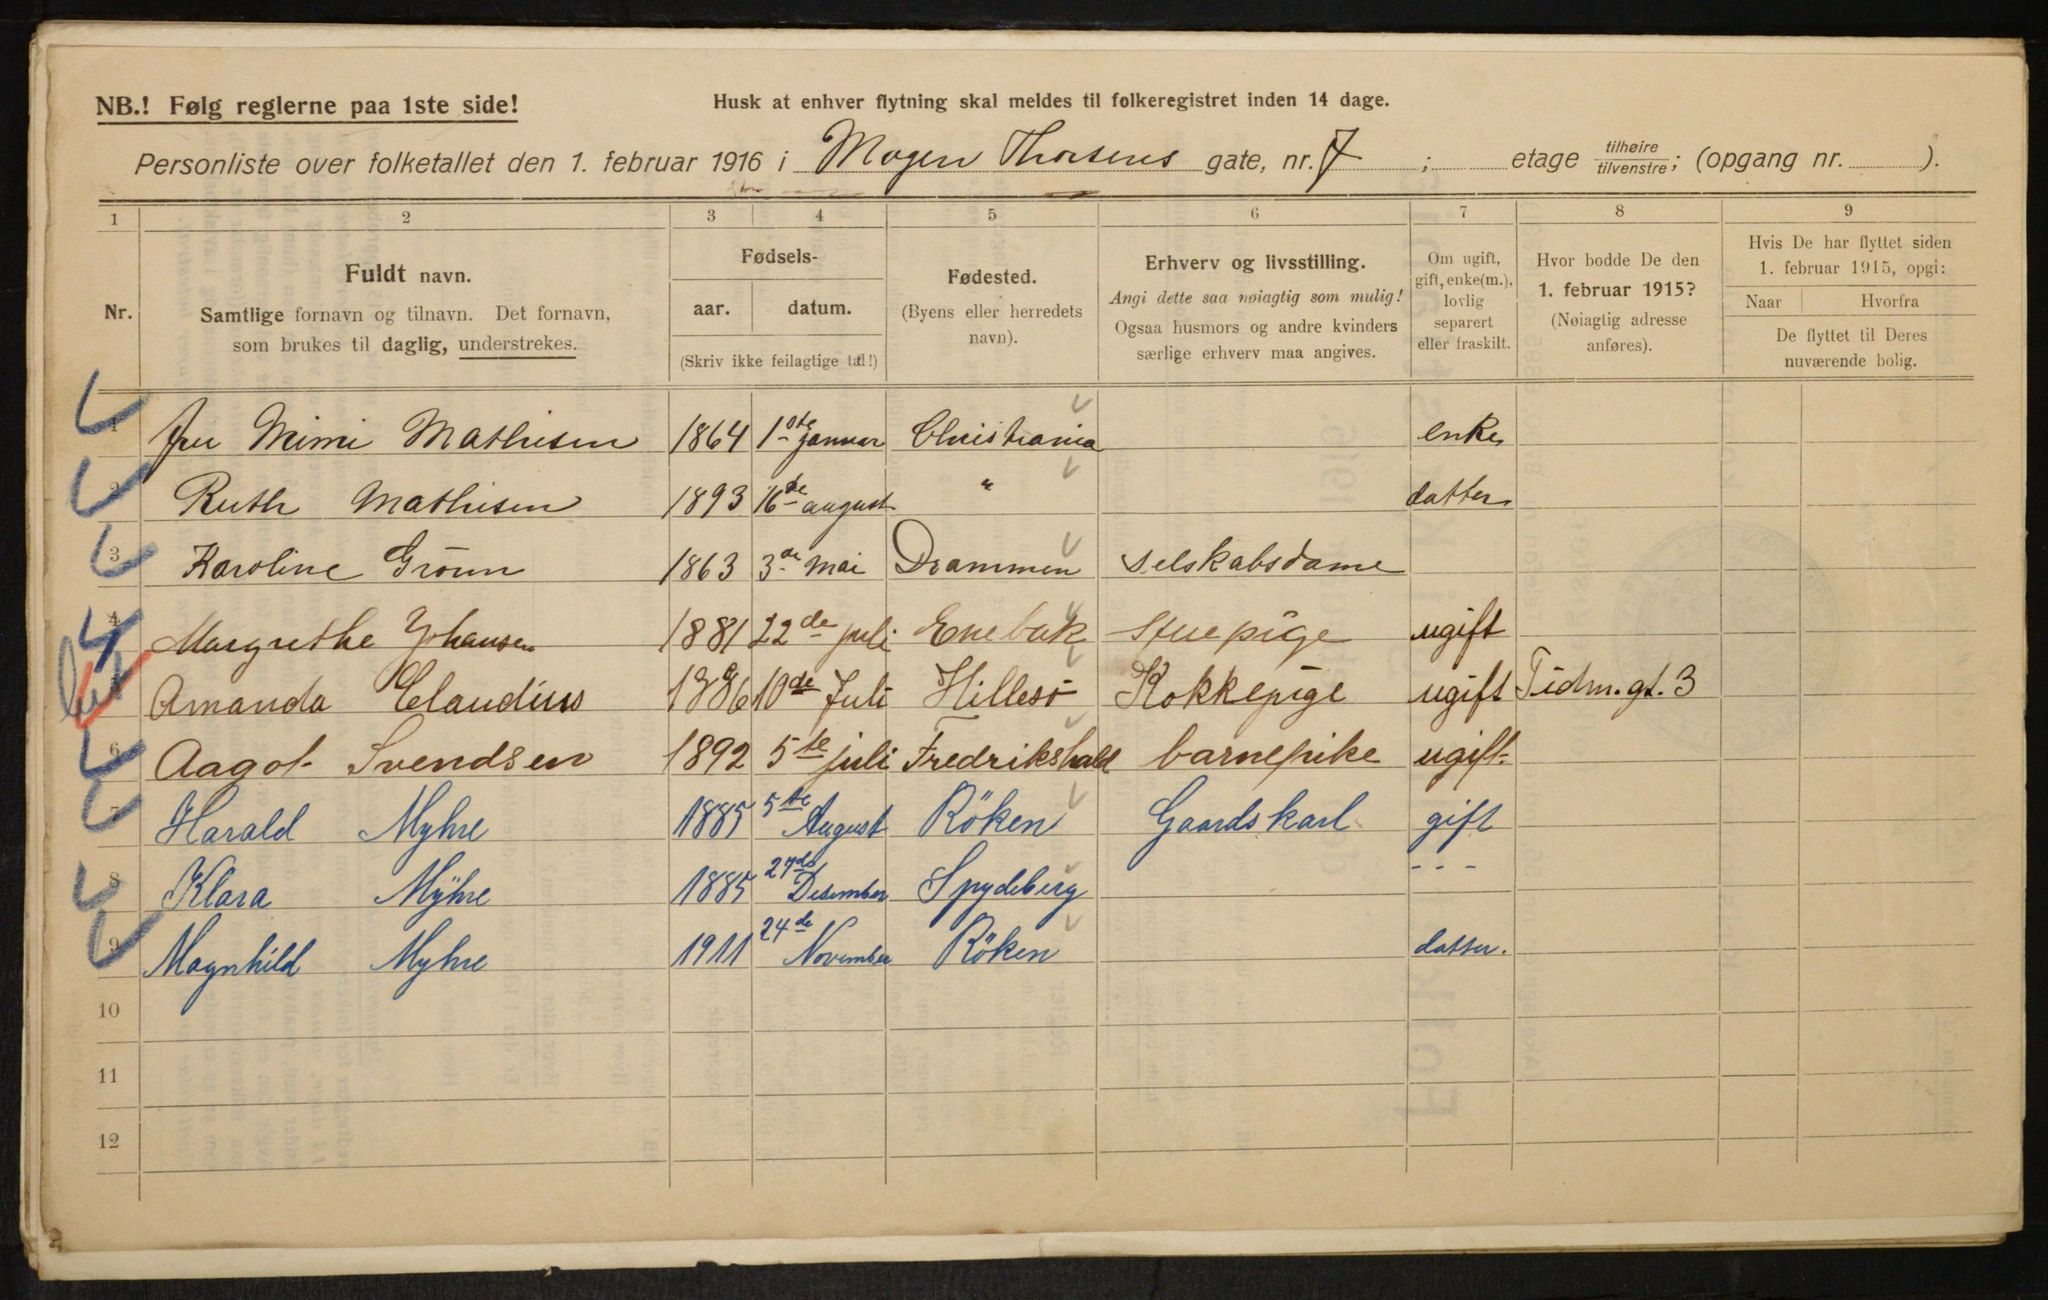 NB.! Følg reglerne paa 1ste side!
Husk at enhver flytning skal meldes til folkeregistret inden 14 dage.
Personliste over folketallet den 1. februar 1916 i Mogen Thorsens gate, nr. 7 ; etage tilhøire tilvenstre; (opgang nr. ).
1 2 3 4 5 6 7 8 9
Nr.
Fuldt navn.
Samtlige fornavn og tilnavn. Det fornavn,
som brukes til daglig, understrekes.
Fødsels-
aar. datum.
(Skriv ikke feilagtige tal!)
Fødested.
(Byens eller herredets
navn).
Erhverv og livsstilling.
Angi dette saa nøiagtig som mulig!
Ogsaa husmors og andre kvinders
særlige erhverv maa angives.
Om ugift,
gift, enke(m.),
lovlig
separert
eller fraskilt.
Hvor bodde De den
1. februar 1915?
(Nøiagtig adresse
anføres).
Hvis De har flyttet siden
1. februar 1915, opgi:
Naar Hvorfra
De flyttet til Deres
nuværende bolig.
1 fru Mimi Mathisen 1864 1ste januar Christiania enke
2 Ruth Mathisen 1893 16de august " datter
3 Karoline Grönn 1863 3de Mai Drammen selskabsdame
4 Margrethe Johansen 1881 22de juli Enebak Stuepige ugift
Amanda Claudius 1886 10de Juli Hillesö Kokkepige ugift Tidm. gt. 3
6 Aagot Svendsen 1892 5te juli Fredrikshald barnepike ugift.
7 Harald Myhre 1885 5te August Röken Gaardskarl gift
8 Klara Myhre 1885 24de Desember Spydeberg - - -
9 Magnhild Myhre 1911 24de November Röken datter.
10
11
12